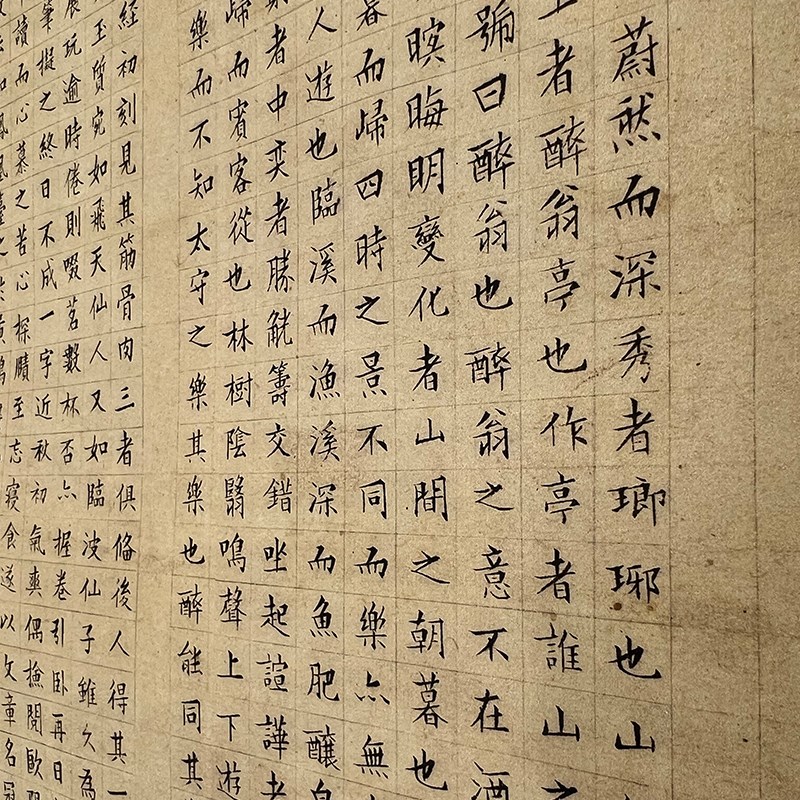 蔚然而深秀者瑯琊也山
上者醉翁亭也作亭者誰山之
號曰醉翁也醉翁之意不在酒
暝晦明變化者山間之朝暮也
而歸四時之景不同而樂亦無
人遊也臨溪而漁溪深而魚肥釀泉
者中奕者勝觥籌交錯坐起諠譁者
歸而賓客從也林樹陰翳鳴聲上下遊
樂而不知太守之樂其樂也醉能同其
經初刻見其筋骨肉三者俱俻後人得其一
玉質宛如飛天仙人又如臨波仙子雖久為
展玩逾時倦則啜茗數杯否亦握卷引臥再日
筆擬之終日不成一字近秋初氣爽偶撿閱歐
讀而心慕之苦心探賾至忘寢食遂以文章名